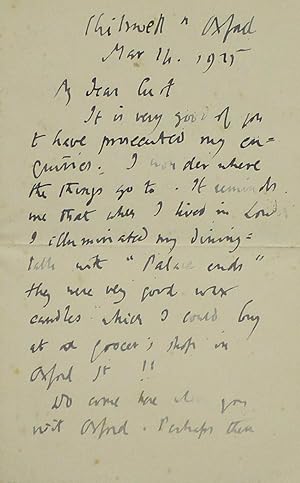 Chilswell " Oxford
Mar 14. 1925
My dear Cust
It is very good of you
to have prosecuted my en-
quiries. I wonder where
the things go to. It reminds
me that when I lived in London
I illuminated my dining-
table with "Palace ends"
they were very good wax
candles which I could buy
at a grocer's shop in
Oxford St !!
Do come here when you
visit Oxford. Perhaps then